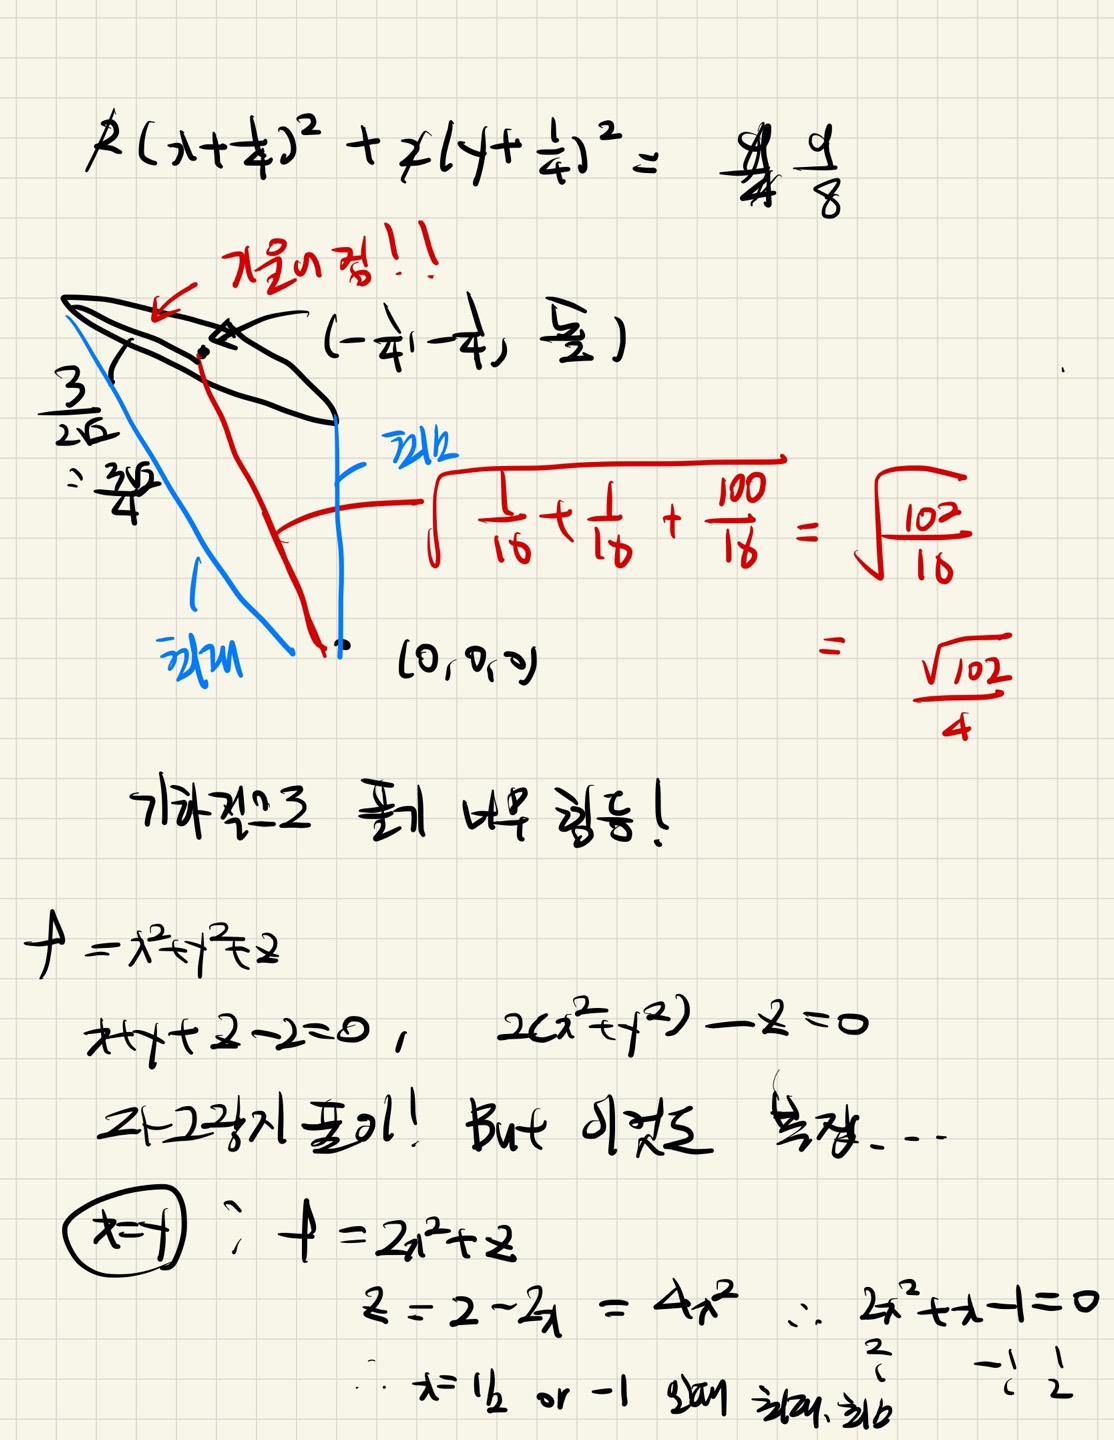 2(x+1/4)² + 2(y+1/4)² = 9/4 9/8
기울어짐!!
(-1/4, -1/4, 5/2)
3/2√2
∴ 3√2/4
최소
√(1/16 + 1/16 + 100/16) = √(102/16)
최대
(0, 0, 0)
= √102/4
기하적으로 풀기 너무 힘듬!
f = x²+y²+z
x+y+z-2=0, 2(x²+y²)-z=0
라그랑지 풀이! But 이것도 복잡...
x=y ∴ f = 2x²+z
z = 2-2x = 4x² ∴ 2x²+x-1=0
2 -1 1
1 1 2
∴ x= 1/2 or -1 일때 최대, 최소